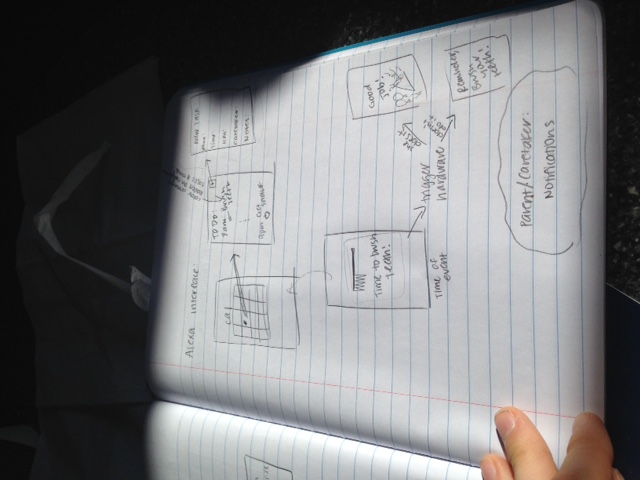 Alexa Interface
cal
TO DO:
7am Brush
teeth
New Task
Time:
Caretaker
Notes:
Time to brush
teeth!
Time of
event
trigger
hardware
does it
doesn't
do it
Good
Job!
Reminder,
Brush
your
teeth!
Parent/Caretaker:
Notifications